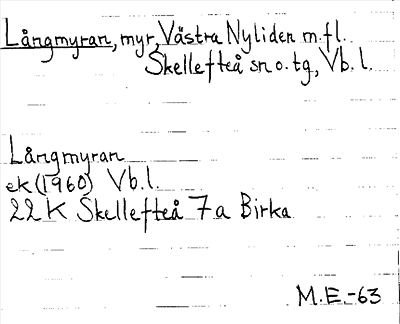 Långmyran, myr, Västra Nyliden m.fl.
Skellefteå sn o. tg, Vb. l.
Långmyran
ek (1960) Vb. l.
22 K Skellefteå 7 a Birka
M.E.-63